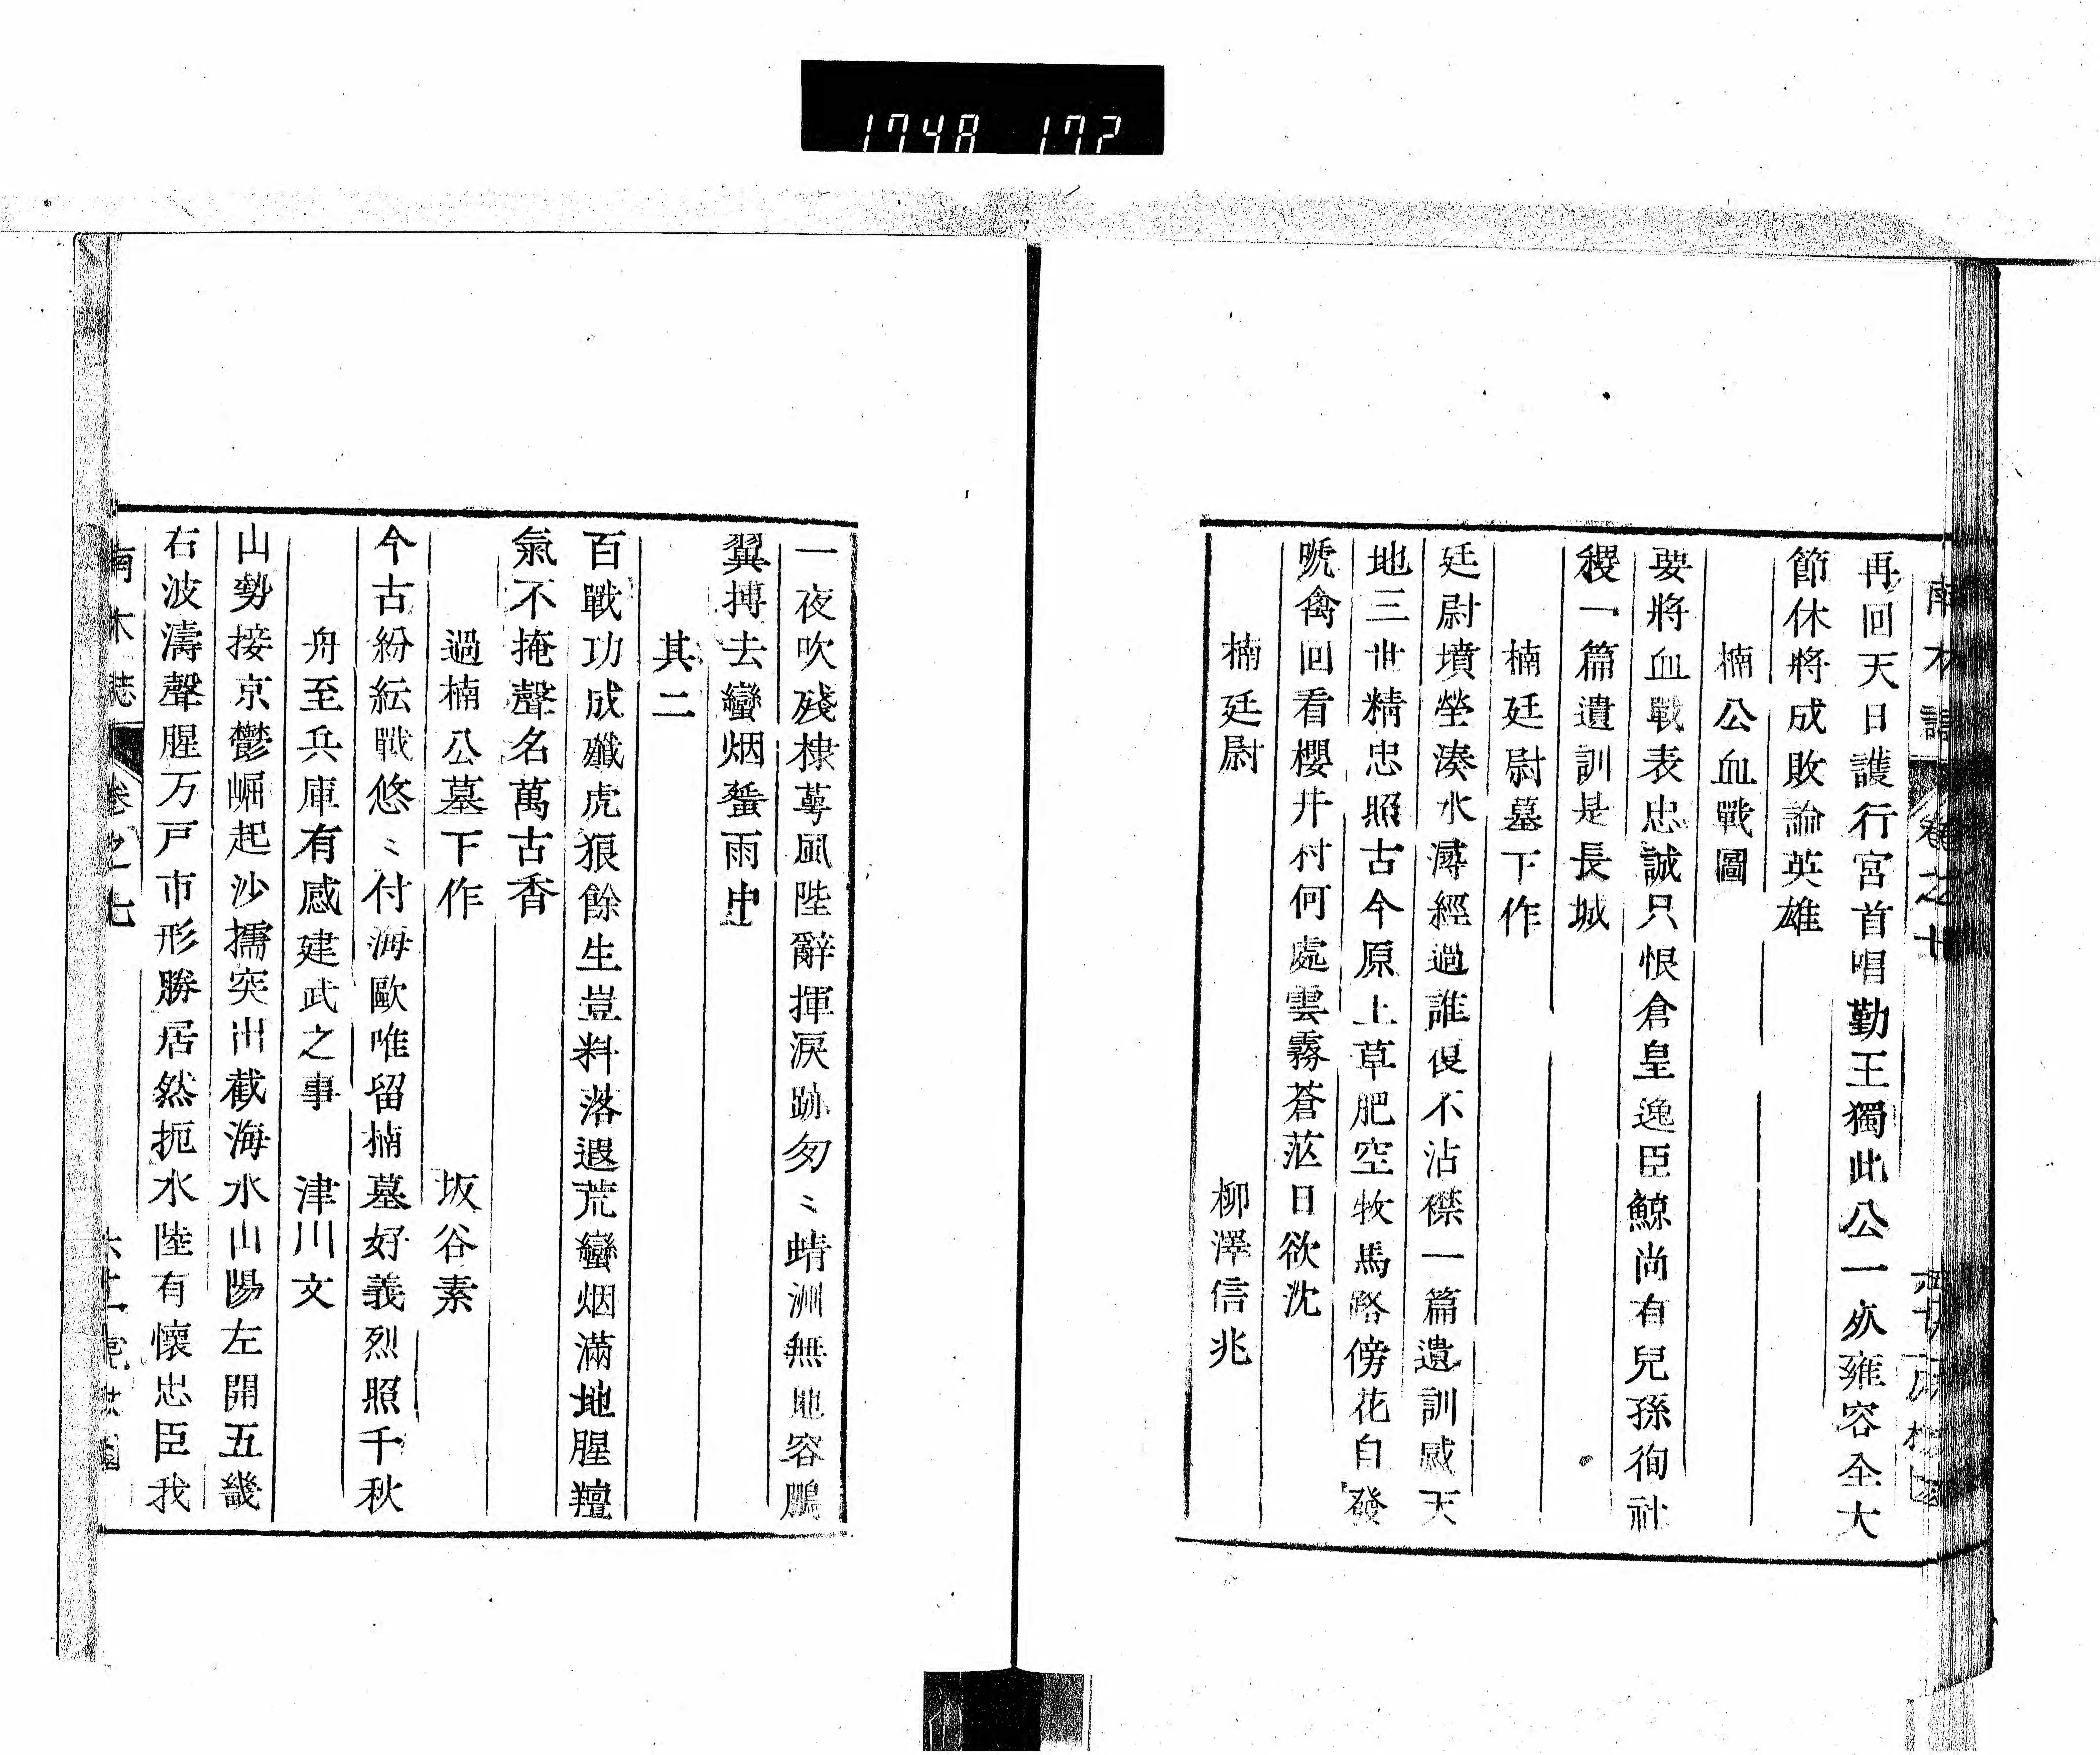 1748 172
再回天日護行宮首唱勤王獨此公一死雍容全大
節休將成敗論英雄
楠公血戰圖
要將血戰表忠誠只恨倉皇逸巨鯨尚有兒孫徇社
稷一篇遺訓是長城
楠廷尉墓下作
廷尉墳塋湊水潯經過誰復不沾襟一篇遺訓感天
地三世精忠照古今原上草肥空牧馬路傍花自發
號禽回看櫻井村何處雲霧蒼茫日欲沈
楠廷尉 柳澤信兆
一夜吹殘棣萼風陛辭揮淚跡匆〻蜻洲無地容鵬
翼搏去蠻烟蜑雨中
其二
百戰功成殲虎狼餘生豈料落遐荒蠻烟滿地腥羶
氣不掩聲名萬古香
過楠公墓下作 坂谷素
今古紛紜戰悠〻付海鷗唯留楠墓好義烈照千秋
舟至兵庫有感建武之事 津川文
山勢接京鬱崛起沙擩突出截海水山陽左開五畿
右波濤聲腥万戸市形勝居然扼水陸有懷忠臣我
南木誌 卷之七